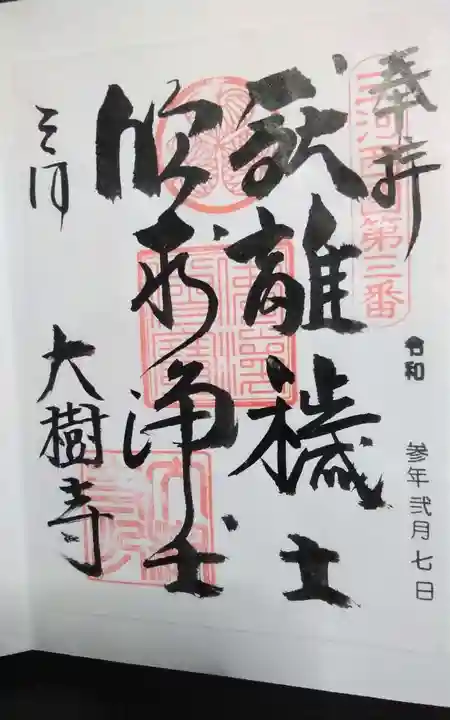 奉拝
第三番
令和
参年弐月七日
厭離穢土
欣求浄土
三河
大樹寺